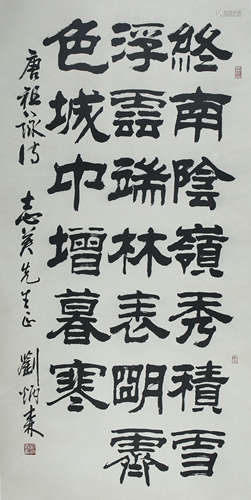 終南陰嶺秀積雪
浮雲端林表明霽
色城中增暮寒
唐祖詠詩 志英先生正 劉炳森